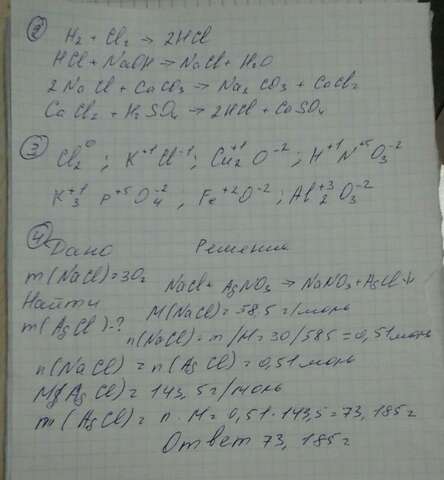 2) H₂ + Cl₂ → 2HCl
HCl + NaOH → NaCl + H₂O
2NaCl + CaCO₃ → Na₂CO₃ + CaCl₂
CaCl₂ + H₂SO₄ → 2HCl + CaSO₄
3) Cl₂⁰ ; K⁺¹Cl⁻¹ ; Cu₂⁺¹O⁻² ; H⁺¹N⁺⁵O₃⁻²
K₃⁺¹P⁺⁵O₄⁻² , Fe⁺²O⁻² ; Al₂⁺³O₃⁻²
4) Дано Решение
m(NaCl)=30г NaCl + AgNO₃ → NaNO₃ + AgCl↓
Найти M(NaCl)=58,5 г/моль
m(AgCl)-? n(NaCl)= m/M = 30/58,5 = 0,51 моль
n(NaCl) = n(AgCl) = 0,51 моль
M(AgCl) = 143,5 г/моль
m(AgCl) = n · M = 0,51 · 143,5 = 73,185 г
Ответ 73,185 г